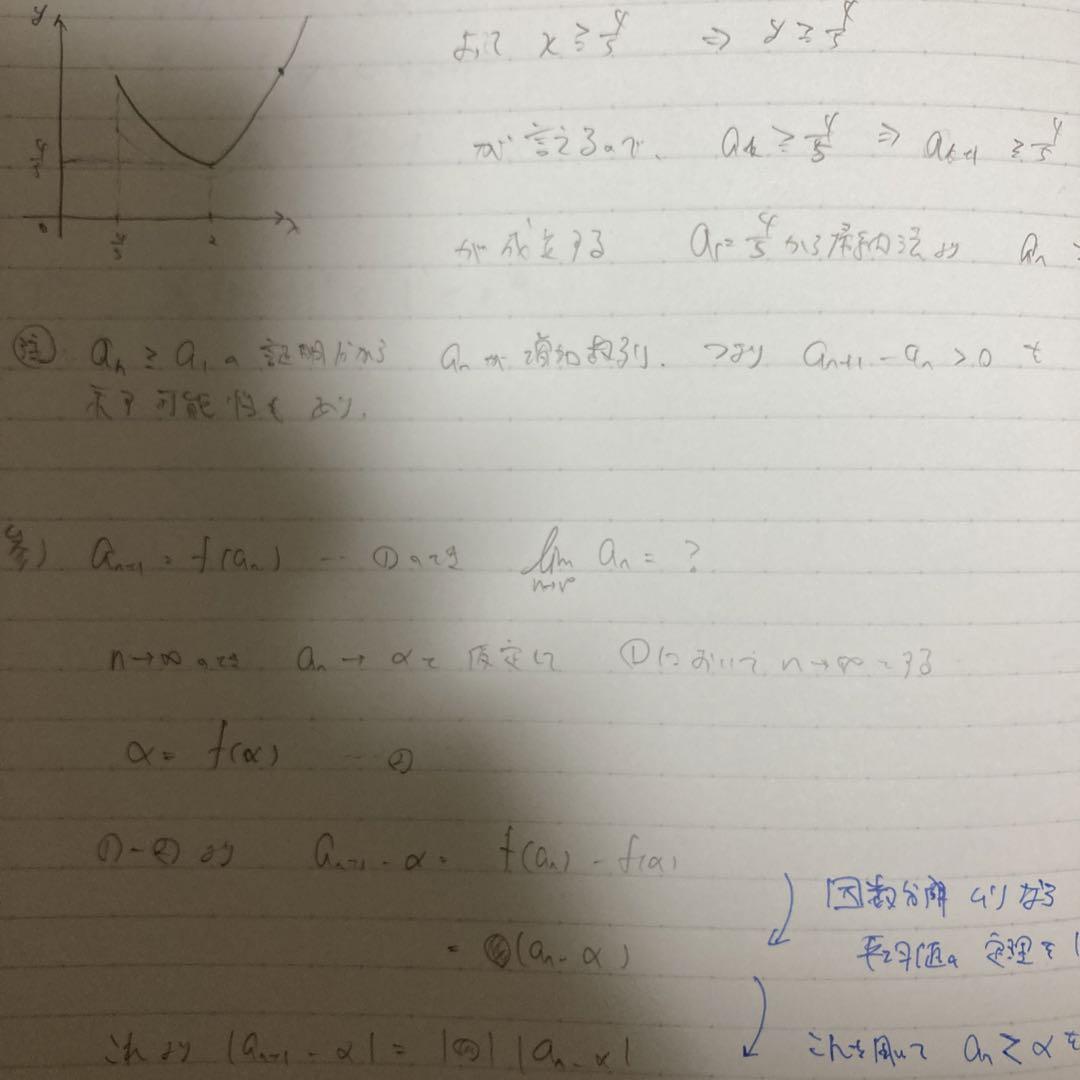 y
よって x ≧ 4/5 ⇒ y ≧ 4/5
4/5
が言えるので、 ak ≧ 4/5 ⇒ ak+1 ≧ 4/5
が成立する a1 = 4/5 から帰納法より an ≧
0 4/5 2 x
注 an ≧ a1 の証明だから an が増加数列, つまり an+1 - an > 0 を
示す可能性もあり.
参) an+1 = f(an) … ① のとき lim n→∞ an = ?
n→∞ のとき an → α と仮定して ①において n→∞ とする
α = f(α) … ②
①-② より an+1 - α = f(an) - f(α)
因数分解 ムリなら
= (an - α)
平均値の定理を
これより |an+1 - α| = | | |an - α|
これを用いて an ≧ α を